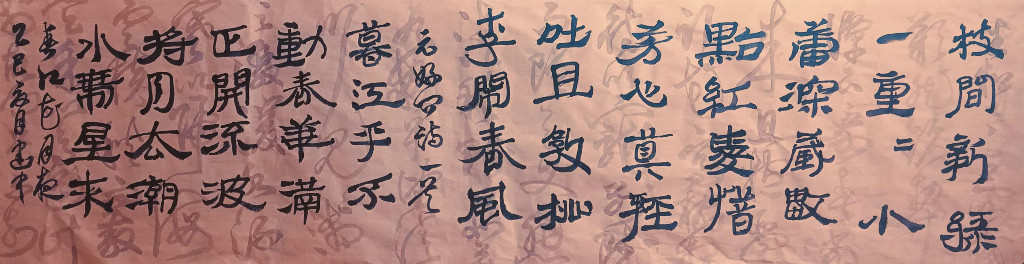 枝間新綠
一重二小
蕾深藏數
點紅愛惜
芳心莫輕
吐且教桃
李鬧春風
元好問詩一首
暮江平不
動春華滿
正開流波
將月去潮
水帶星來
春江花月夜
乙巳 月